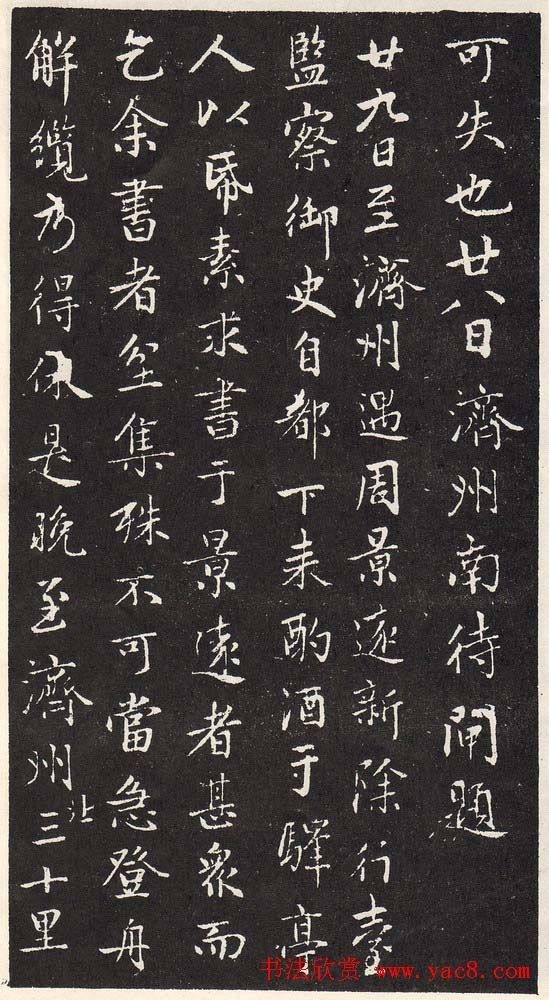 可失也廿八日濟州南待閘題
廿九日至濟州遇周景遠新除行臺
監察御史自都下来酌酒于驛亭
人以帋素求書于景遠者甚衆而
乞余書者坌集殊不可當急登舟
解纜乃得休是晚至濟州北三十里
书法欣赏 www.yac8.com